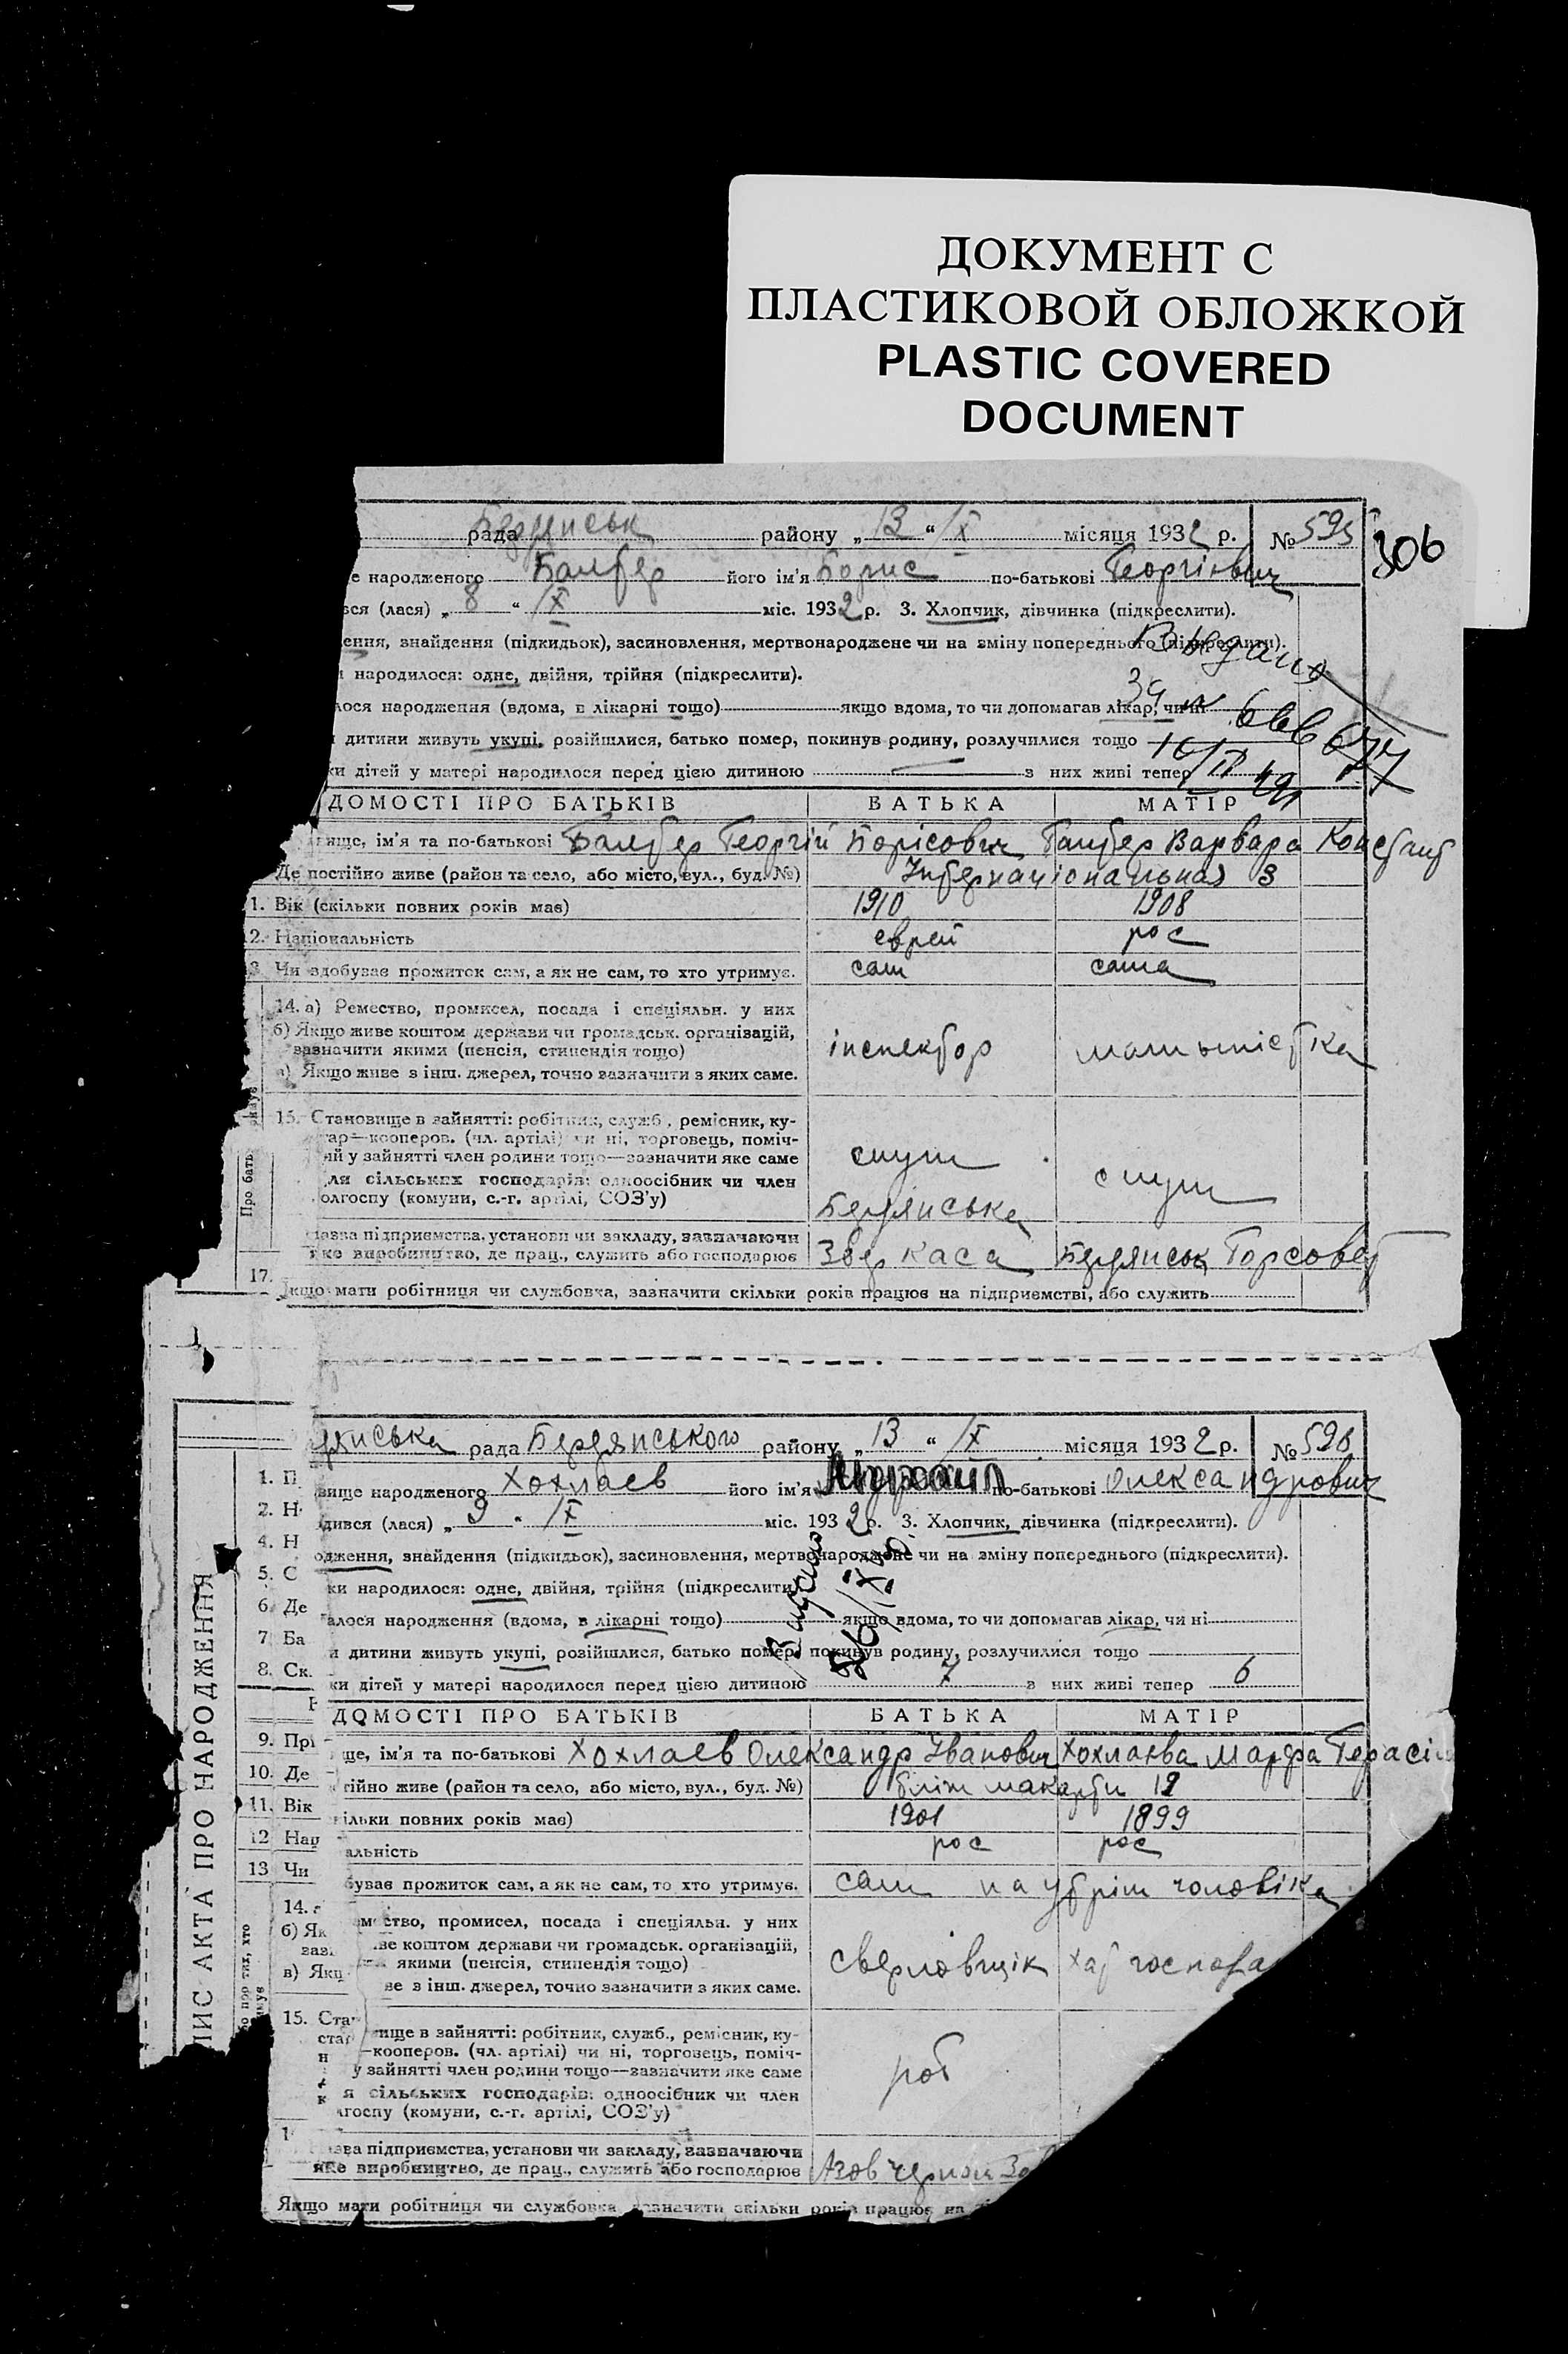 ДОКУМЕНТ С
ПЛАСТИКОВОЙ ОБЛОЖКОЙ
PLASTIC COVERED
DOCUMENT
306
рада Бердянськ району „13“ IX місяця 1932 р. № 595
е народженого Балбер його ім'я Борис по-батькові Георгієвич
вся (лася) „8“ IX міс. 1932 р. 3. Хлопчик, дівчинка (підкреслити).
ення, знайдення (підкидьок), засиновлення, мертвонароджене чи на зміну попереднього (підкреслити).
народилося: одне, двійня, трійня (підкреслити).
лося народження (вдома, в лікарні тощо) якщо вдома, то чи допомагав лікар, чи ні
дитини живуть укупі, розійшлися, батько помер, покинув родину, розлучилися тощо
ки дітей у матері народилося перед цією дитиною — з них живі тепер
ДОМОСТІ ПРО БАТЬКІВ БАТЬКА МАТІР
ище, ім'я та по-батькові Балбер Георгій Борісович Балбер Варвара Констант
Де постійно живе (район та село, або місто, вул., буд. №) Інтернаціональная 3
1. Вік (скільки повних років має) 1910 1908
2. Національність еврей рос
3. Чи здобуває прожиток сам, а як не сам, то хто утримує. сам сама
14. а) Ремество, промисел, посада і спеціяльн. у них
б) Якщо живе коштом держави чи громадськ. організацій,
зазначити якими (пенсія, стипендія тощо) інспектор машиністка
в) Якщо живе з інш. джерел, точно зазначити з яких саме.
15. Становище в зайнятті: робітник, служб., ремісник, ку-
тар—кооперов. (чл. артілі) чи ні, торговець, поміч-
ий у зайнятті член родини тощо—зазначити яке саме служ служ
ля сільських господарів: одноосібник чи член
олгоспу (комуни, с.-г. артілі, СОЗ'у) Бердянська
азва підприємства, установи чи закладу, зазначаючи
яке виробництво, де прац., служить або господарює Збер каса Бердянськ Горсовет
17. Якщо мати робітниця чи службовка, зазначити скільки років працює на підприємстві, або служить
Видано
666677
ПИС АКТА ПРО НАРОДЖЕННЯ
дянська рада Бердянського району „13“ IX місяця 1932 р. № 596
1. П вище народженого Хохлаев його ім'я по-батькові Олександрович
2. Н дився (лася) „9“ IX міс. 1932 р. 3. Хлопчик, дівчинка (підкреслити).
4. Н одження, знайдення (підкидьок), засиновлення, мертвонароджене чи на зміну попереднього (підкреслити).
5. С ки народилося: одне, двійня, трійня (підкреслити)
6. Де алося народження (вдома, в лікарні тощо) якщо вдома, то чи допомагав лікар, чи ні
7. Ба и дитини живуть укупі, розійшлися, батько помер, покинув родину, розлучилися тощо
8. Ск. ки дітей у матері народилося перед цією дитиною 7 в них живі тепер 6
ДОМОСТІ ПРО БАТЬКІВ БАТЬКА МАТІР
9. Прі ще, ім'я та по-батькові Хохлаев Олександр Іванович Хохлаєва Марфа Герасі
10. Де тійно живе (район та село, або місто, вул., буд. №) 12
11. Вік ільки повних років має) 1901 1899
12 Нац альність рос рос
13 Чи бував прожиток сам, а як не сам, то хто утримує. сам на утрім чоловіка
14. а мество, промисел, посада і спеціяльн. у них
б) Як ве коштом держави чи громадськ. організацій,
заз якими (пенсія, стипендія тощо) сверловщік хат господа
в) Якщ ве з інш. джерел, точно зазначити з яких саме.
15. Ста ище в зайнятті: робітник, служб., ремісник, ку-
стар —кооперов. (чл. артілі) чи ні, торговець, поміч-
н у зайнятті член родини тощо—зазначити яке саме роб
я сільських господарів: одноосібник чи член
к лгоспу (комуни, с.-г. артілі, СОЗ'у)
зва підприємства, установи чи закладу, зазначаючи
яке виробництво, де прац., служить або господарює
Якщо мати робітниця чи службовка зазначити скільки років працює на